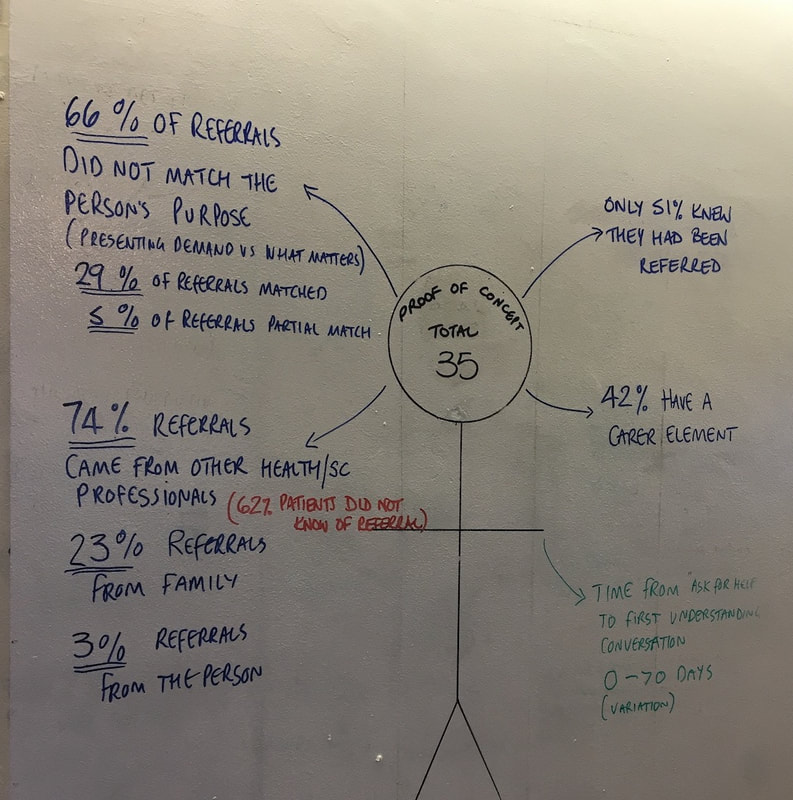 66% OF REFERRALS
DID NOT MATCH THE
PERSON'S PURPOSE
(PRESENTING DEMAND VS WHAT MATTERS)
29% OF REFERRALS MATCHED
5% OF REFERRALS PARTIAL MATCH
74% REFERRALS
CAME FROM OTHER HEALTH/SC
PROFESSIONALS
(62% PATIENTS DID NOT
KNOW OF REFERRAL)
23% REFERRALS
FROM FAMILY
3% REFERRALS
FROM THE PERSON
PROOF OF CONCEPT
TOTAL
35
ONLY 51% KNEW
THEY HAD BEEN
REFERRED
42% HAVE A
CARER ELEMENT
TIME FROM "ASK FOR HELP
TO FIRST UNDERSTANDING
CONVERSATION
0-70 DAYS
(VARIATION)